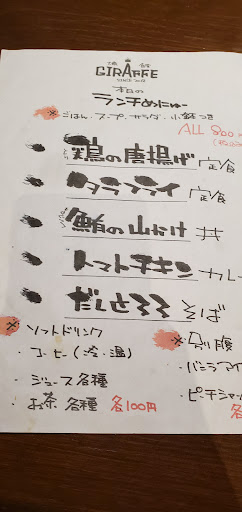 GIRAFFE
SINCE 2012
本日の
ランチめにゅー
※ごはん・スープ・サラダ・小鉢つき
ALL 800
鶏の唐揚げ 定食
タラフライ 定食
鮪の山かけ 丼
トマトチキン カレー
だしとろろ そば
※ソフトドリンク
・コーヒー(冷・温)
・ジュース各種
・お茶 各種 各100円
※別腹
・バニラアイ
・ピーチシャー
各